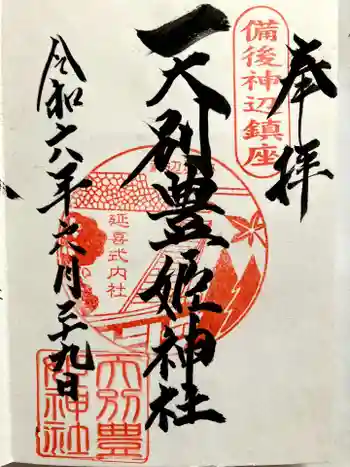 奉拝
備後神辺鎮座
天別豊姫神社
延喜式内社
令和六年六月二十九日
天別豊
姫神社